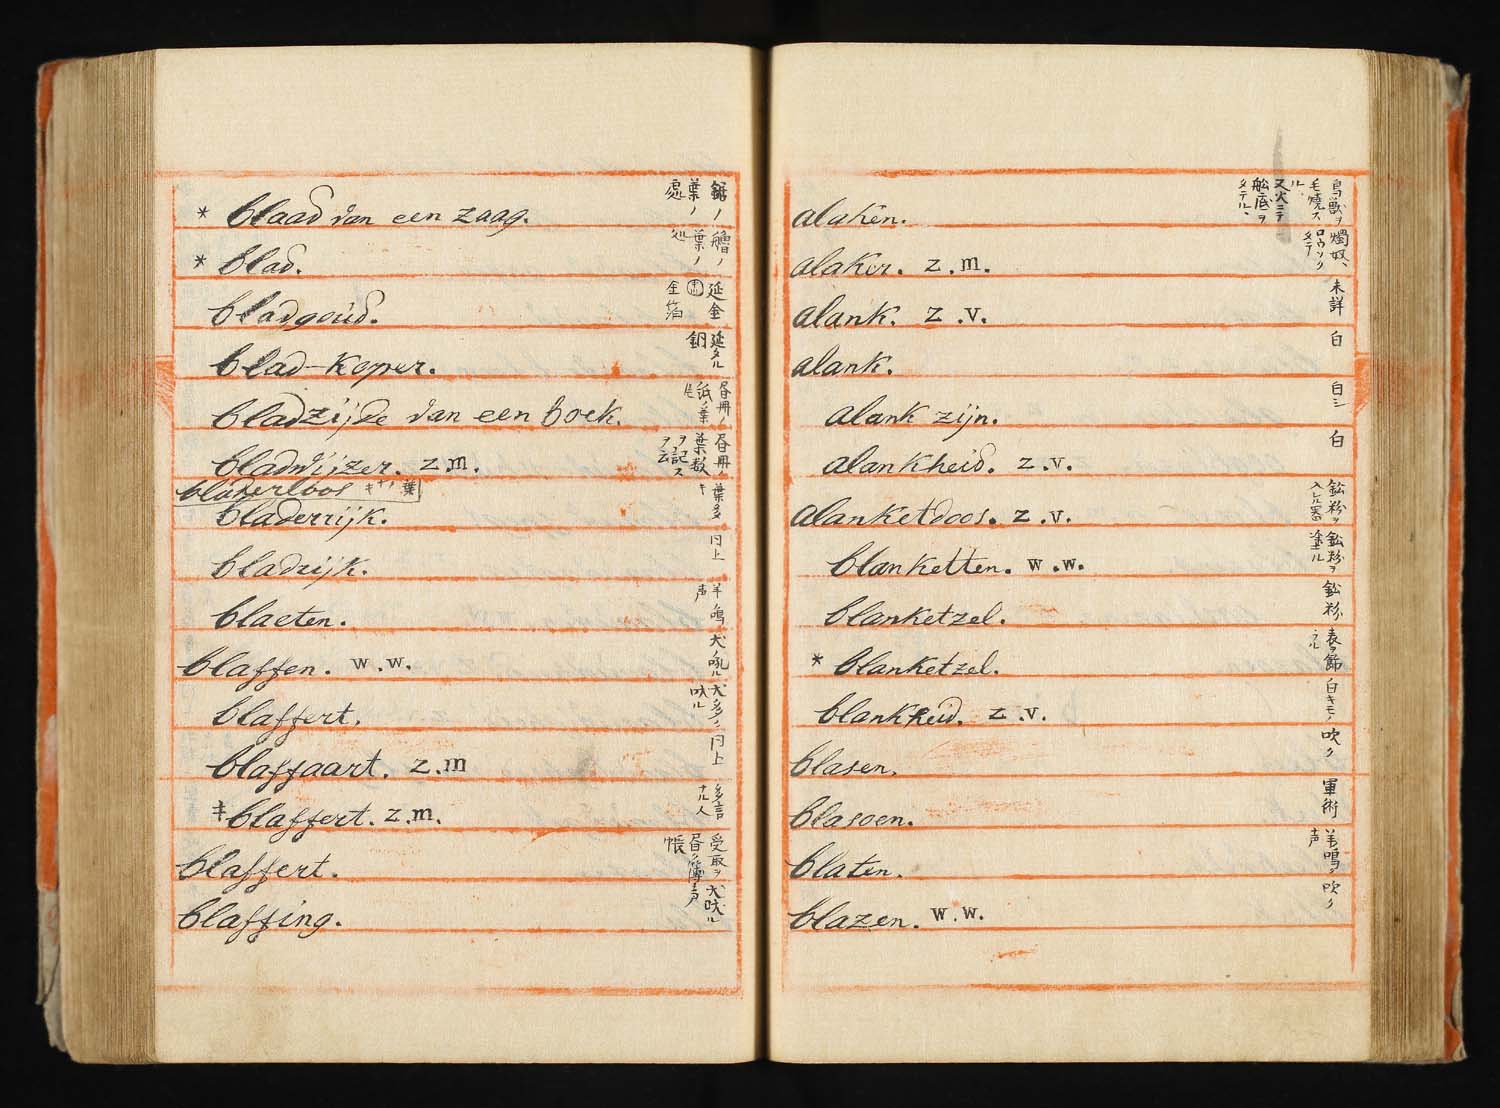 * blaad van een zaag. 鋸ノ葉ノ處
* blad. 艪ノ葉ノ処
bladgoud. 延金 金箔
blad-koper. 延タル銅
bladzijde van een boek. 昼冊ノ紙ノ葉
bladwijzer. z.m. 昼冊ノ葉数ヲ記スヲ云
bladerloos 葉ノナキ
bladerrijk. 葉多キ
bladrijk. 円上
blaeten. 羊鳴声
blaffen. w.w. 犬吼ル
blaffert. 犬多ク吠ル
blaffaart. z.m 円上
‡ blaffert. z.m. 多言ナル人
blaffert. 受取ヲ 帳
blaffing. 犬吠ル
alaken. 鳥獣ヲ毛焼スル、又火ニテ舩底ヲタテル、
alaker. z.m. 燭奴、ロウソクタテ
alank. z.v. 未詳
alank. 白
alank zijn. 白シ
alankheid. z.v. 白
alanketdoos. z.v. 鉛粉ヲ入レル器
blanketten. w.w. 鉛粉ヲ塗ル
blanketzel. 鉛粉
* blanketzel. 表ヲ餙ル
blankheid. z.v. 白キモノ
blasen. 吹ク
blasoen. 軍術
blaten. 羊鳴ク声
blazen. w.w. 吹ク